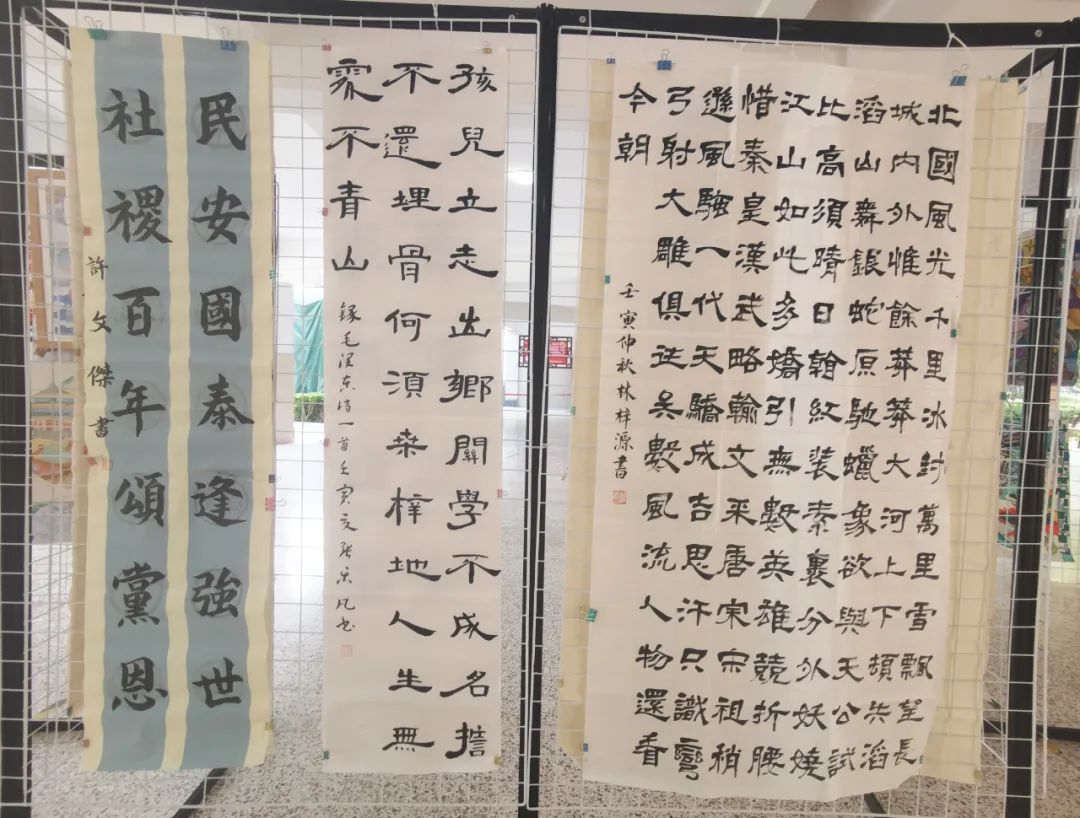 北國風光千里冰封萬里雪飄望長
城內外惟餘莽莽大河上下頓失滔
滔山舞銀蛇原馳蠟象欲與天公試
比高須晴日翰紅裝素裹分外妖嬈
江山如此多嬌引無數英雄競折腰
惜秦皇漢武略輸文采唐宋宋祖稍
遜風騷一代天驕成吉思汗只識彎
弓射大雕俱往矣數風流人物還看
今朝
壬寅仲秋林梓源書
孩兒立志出鄉關學不成名
不還埋骨何須桑梓地人生無
處不青山
錄毛澤東詩一首壬寅夏
民安國泰逢強世
社稷百年頌黨恩
許文傑書